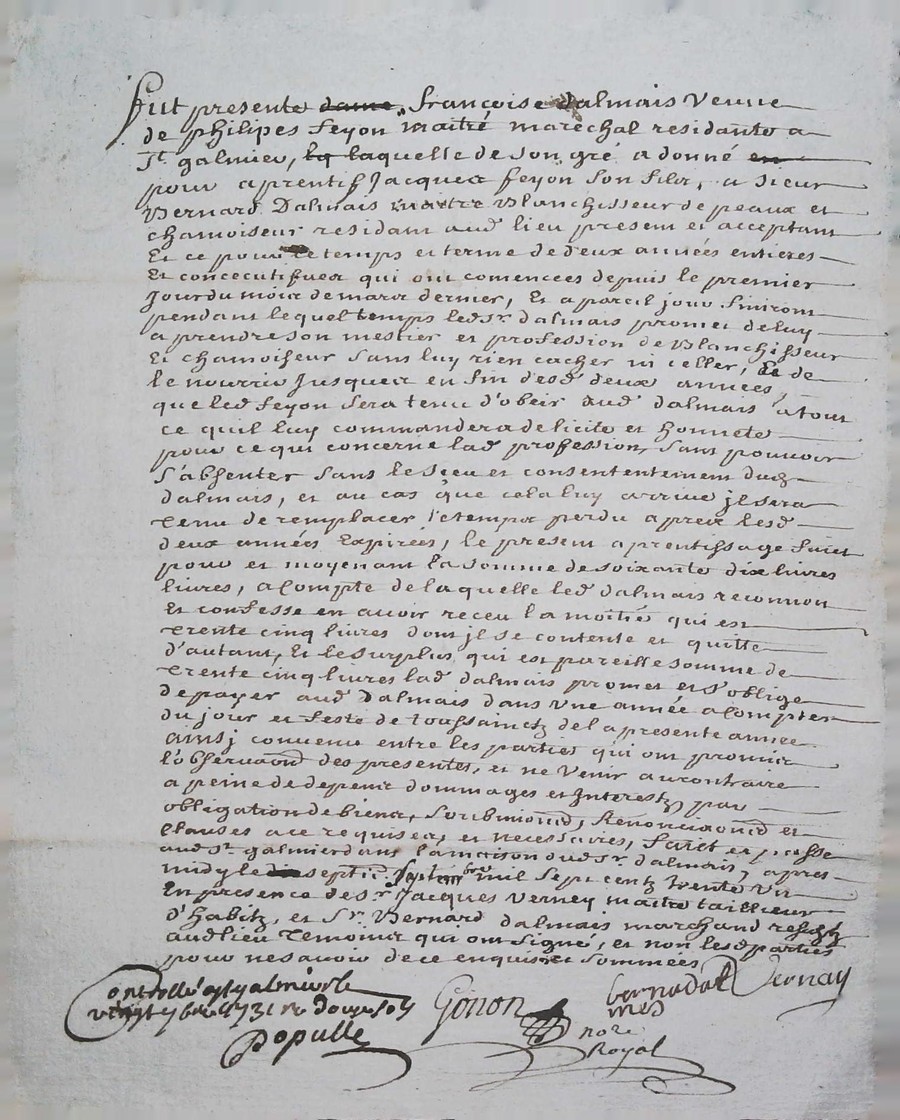 fut presente dame, françoise dalmais veuve
de philipes feyon maitre marechal residante a
St galmier, la laquelle de son gré a donné en
pour aprentif Jacques feyon son fils, a sieur
Bernard Dalmais maitre Blanchisseur de peaux et
chamoiseur residant aud lieu present et acceptant
Et ce pour le temps et terme de deux années entieres
Et concecutifves qui ont comencées depuis le premier
Jour du mois de mars dernier, Et a pareil jour finiront
pendant lequel temps led Sr. dalmais promet de luy
aprendre son mestier et profession de Blanchisseur
Et chamoiseur sans luy rien cacher ni celler, Et de
le nourrir Jusques en fin desd deux années,
que led feyon sera tenu d'obeir aud dalmais a tout
ce quil luy commandera de licite et honnete
pour ce qui concerne lad profession, sans pouvoir
s'absenter sans le sceu et consentement dud
dalmais, et au cas que cela luy arrive jl sera
tenu de remplacer le temps perdu apres lesd
deux années Expirées, le present aprentissage faict
pour et moyenant la somme de soixante dix livres
livres, a compte de laquelle led dalmais reconnoit
Et confesse en avoir receu la moitié qui est
trente cinq livres dont jl se contente et quitte
d'autant, Et le surplus qui est pareille somme de
trente cinq livres lad dalmais promet et s'oblige
de payer aud Dalmais dans une année a compter
du jour et feste de toussainctz de la presente année
ainsj convenu entre les parties qui ont promis
l'observaond des presentes, et ne venir au contraire
a peine de depens dommages et Interestz, par
obligation de biens, soubmiond, Renonciaond et
clauses a ce requises, et necessaires, faict et passé
aud St. galmier dans la maison dud Sr. dalmais, apres
midy le dix septie. Septembre mil sept centz trente un
En presence de Sr. Jacques Verney maitre tailleur
d'habitz, et Sr. Bernard dalmais marchand residtz
aud lieu temoins qui ont signé, et non lesd parties
pour ne savoir de ce enquises et sommées
Controllé a St galmier le
vingt 7bre 1731 rc douze sols
Populle
Gonon
bernadal
mes
Vernay
nore
Royal